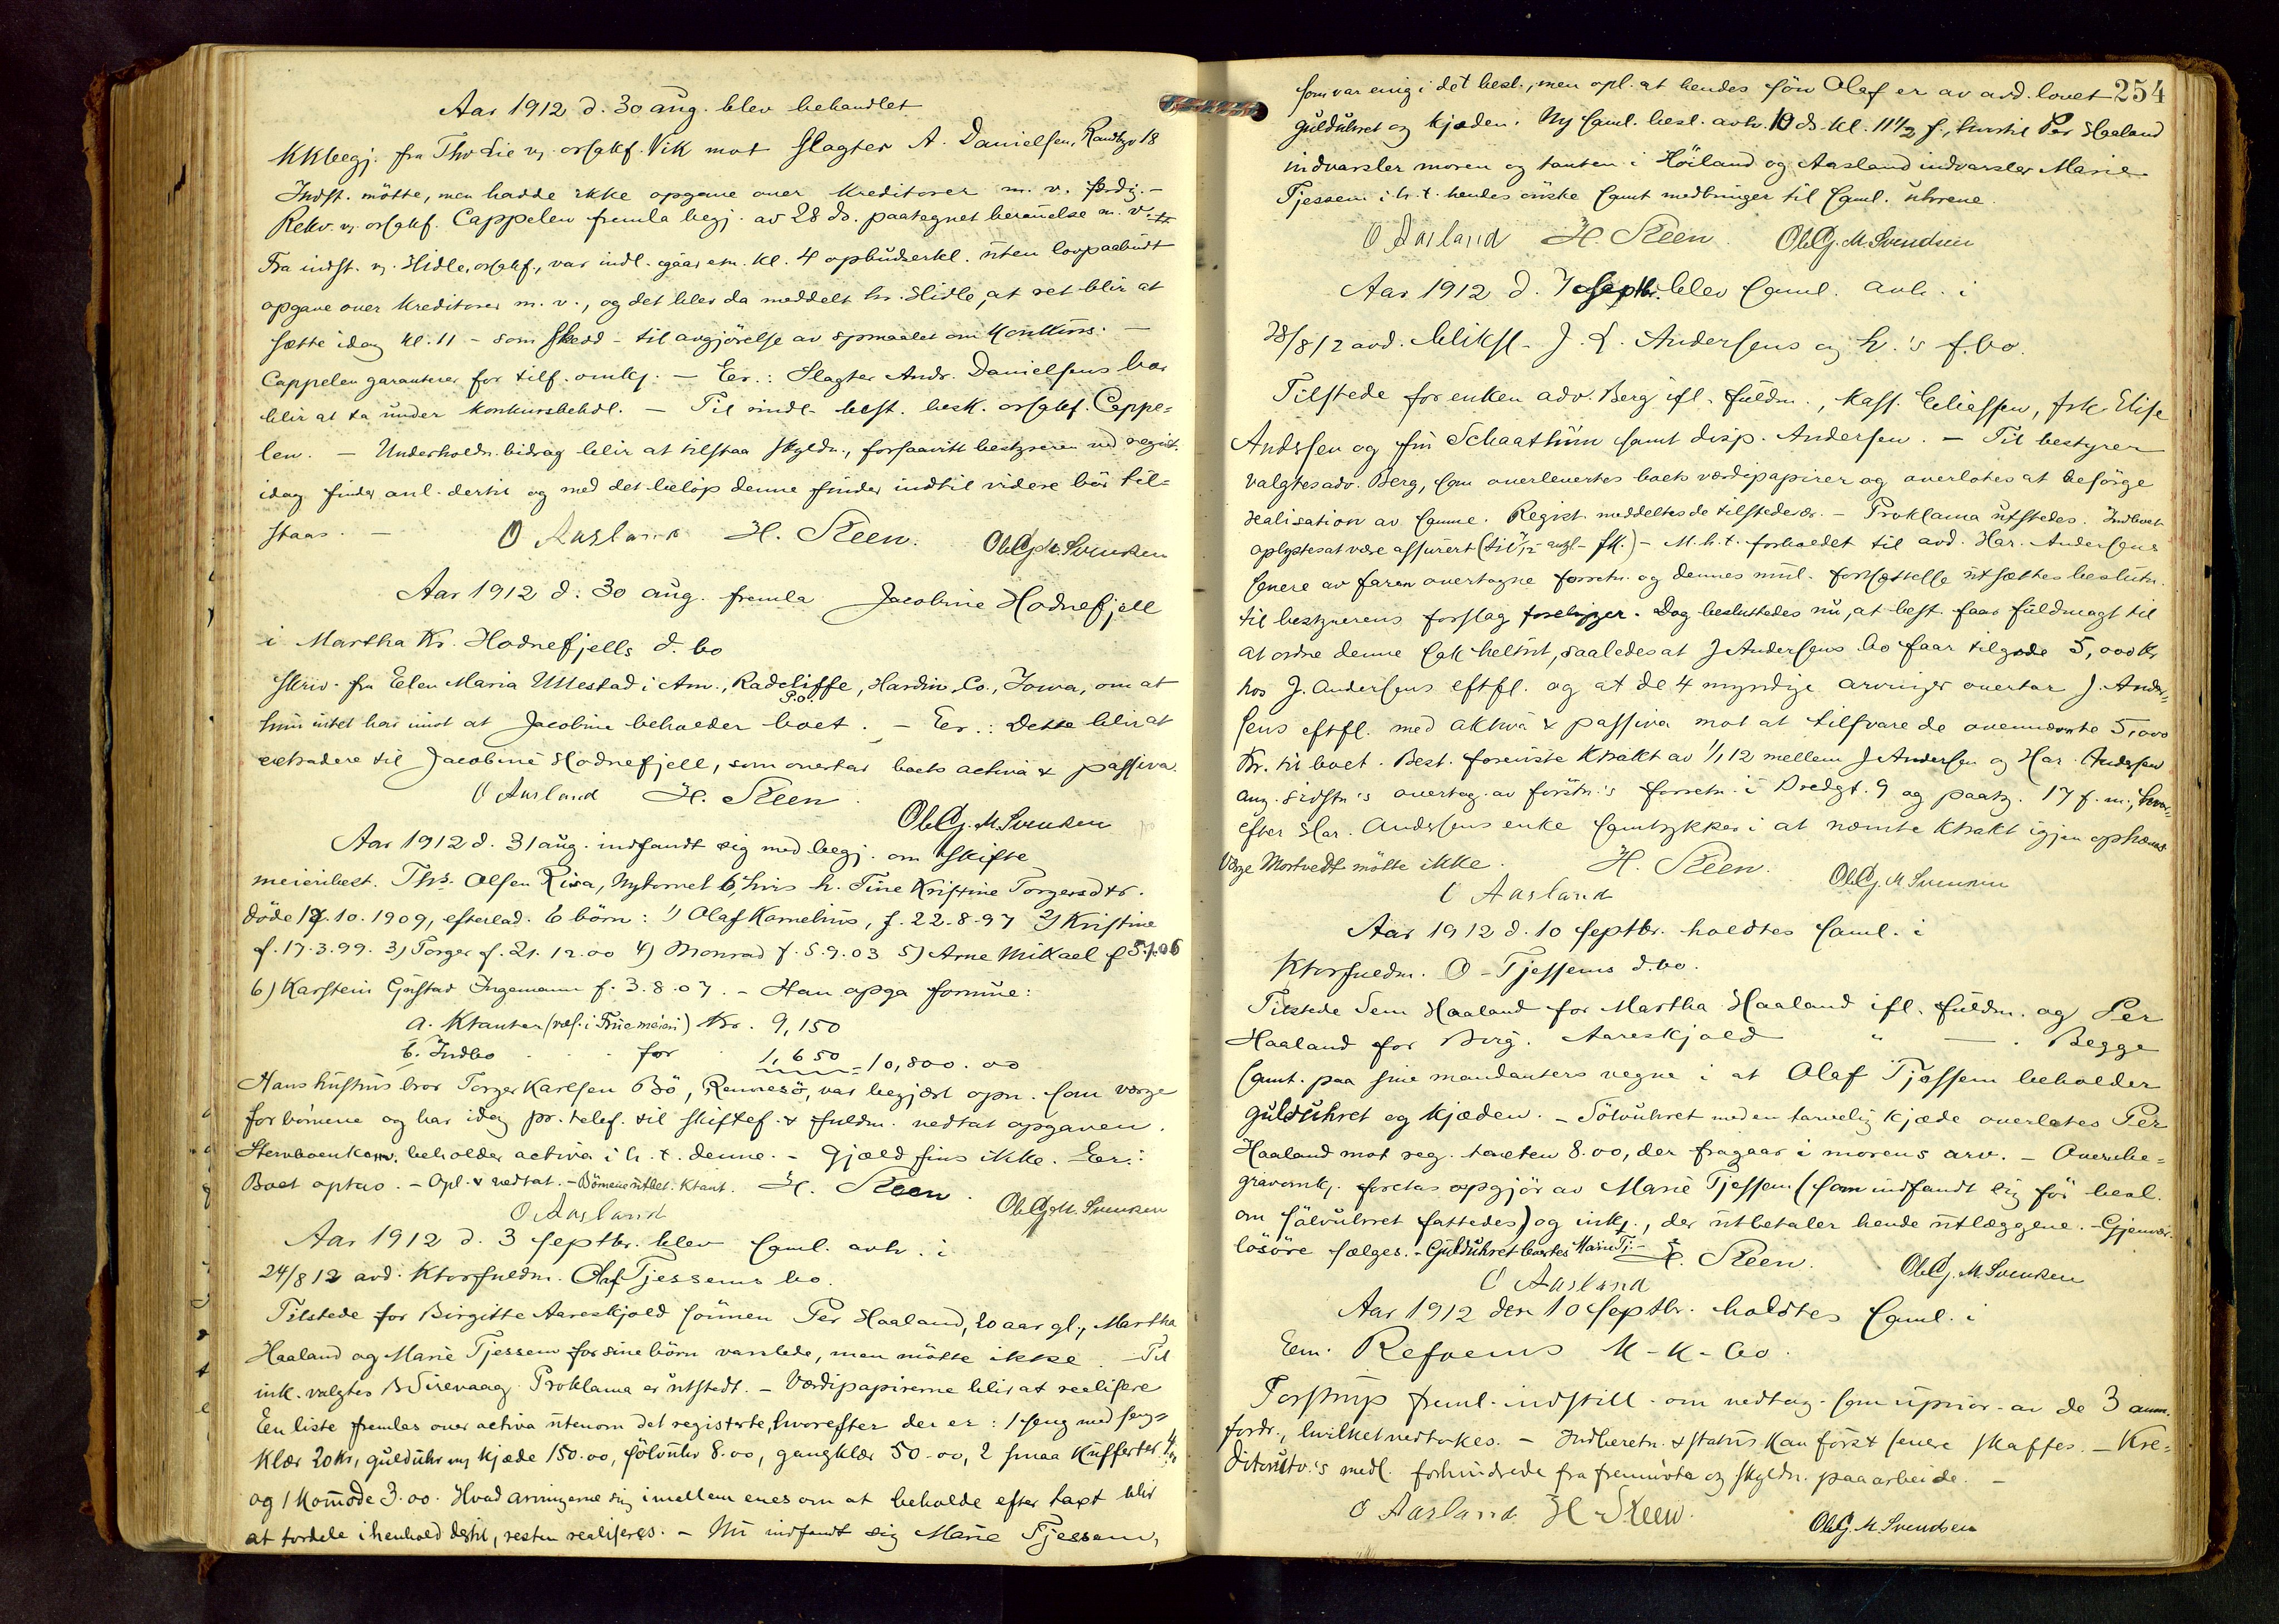 Aar 1912 d. 30 aug. blev behandlet
KKbegj. fra Thv Lie v. orsakf. Vik mot Slagter A. Danielsen, Randbgv 18
Indst. mötte, men hadde ikke opgave over Kreditorer m. v. færdig. -
Rekv. v. orsakf. Cappelen fremla begj. av 28 ds. paategnet berammelse m. v.
Fra indst. v. Hidle, orsakf., var indl. igaar em. kl. 4 opbudserkl. uten lovpaabudt
opgave over Kreditorer m. v., og det blev da meddelt hr. Hidle, at ret blir at
sætte idag kl. 11 - som skedd - til avgjörelse av spmaalet om Konkurs. -
Cappelen garanterer for tilf. omkj. - Eer.: Slagter Andr. Danielsens bo
blir at ta under konkursbehdl. - Til midl. best. besk. orsakf. Cappe=
len. - Underholdn. bidrag blir at tilstaa skyldn., forsaavidt bestyreren ved regist.
idag finder anl. dertil og med det belöp denne finder indtil videre bör til=
staas. - O Aasland H. Steen. Ole Gj. M. Svendsen
Aar 1912 d. 30 aug. fremla Jacobine Hodnefjell
i Martha Kr. Hodnefjells d. bo
skriv. fra Elen Maria Ullestad i Am., Radcliffe, P.o. Hardin, Co., Iowa, om at
hun intet har imot at Jacobine beholder boet. - Eer.: Dette blir at
extradere til Jacobine Hodnefjell, som overtar boets activa & passiva.
O Aasland H. Steen. Ole Gj. M. Svendsen
Aar 1912 d. 31 aug. indfandt sig med begj. om skifte
meieribest. Ths. Olsen Risa, Nytorvet 6, hvis h. Tine Kristine Torgersdtr.
döde 17.10.1909, efterlad. 6 börn: 1) Olaf Kornelius, f. 22.8.97 2) Kristine
f. 17.3.99. 3) Torger f. 21.12.00 4) Monrad f. 5.9.03 5) Arne Mikael f 5.1.06
6) Karstein Gustav Ingemann f. 3.8.07. - Han opga formue:
a. Ktanter (væs. i Friemeieri) Kr. 9,150
b. Indbo for 1,650 = 10,800.00
Hans hustrus bror Torger Karlsen Bö, Rennesö, var begjært opn. som værge
for börnene og har idag pr. telef. til skiftef. & fuldm. vedtat opgaven.
Stervboenkem. beholder activa i h. t. denne. - Gjæld fins ikke. Eer.:
Boet optas. - Opl. & vedtat. - Börnene utbet. Ktant. H. Steen.
O Aasland Ole Gj. M. Svendsen
Aar 1912 d. 3 septbr. blev saml. avh. i
24/8 12 avd. Ktorfuldm. Olaf Tjessems bo.
Tilstede for Birgitte Aareskjold sönnen Per Haaland, 20 aar gl., Martha
Haaland og Marie Tjessem for sine börn varslede, men mötte ikke. - Til
ink. valgtes B Sirevaag. Proklama er utstedt. - Værdipapirerne blir at realisere
En liste fremlas over activa utenom det registerte, hvorefter der er: 1 seng med seng=
klær 20 kr, gulduhr og kjæde 150.00, sölvuhr 8.00, gangklær 50.00, 2 smaa Kufferter
og 1 Komode 3.00. Hvad arvingerne sig imellem enes om at beholde efter taxt blir
at fordele i henhold dertil, resten realiseres. - Nu indfandt sig Marie Tjessem,
254
som var enig i det besl., men opl. at hendes sön Olaf er av avd. lovet
gulduhret og kjæden. Ny saml. besl. avh. 10 ds. kl. 11½ f., hvortil Per Haaland
indvarsler moren og tanten i Höiland og Aasland indvarsler Marie
Tjessem i h. t. hendes önske samt medbringer til saml. uhrene.
O Aasland H. Steen. Ole Gj. M. Svendsen
Aar 1912 d. 7 septbr. blev saml. avh. i
28/8 12 avd. bliksl. J. L. Andersens og h.'s f. bo.
Tilstede for enken adv. Berg ifl. fuldm., Kass. Eeliassen, frk. Elise
Andersen og fru Schaathun samt disp. Andersen. - Til bestyrer
valgtes adv. Berg, som overlevertes boets værdipapirer og overlotes at besörge
realisation av samme. Regist. meddeltes de tilstedevær. - Proklama utstedes. Indboet
oplystes at være assurert - M. h. t. forholdet til avd. Har. Andersens
senere av faren overtagne forretn. og dennes mul. fortsættelse utsættes beslutn.
til bestyrerens forslag foreligger. Dog besluttedes nu, at best. faar fuldmagt til
at ordne denne sak heltut, saaledes at J Andersens bo faar tilgode 5,000 Kr
hos J. Andersens eftfl. og at de 4 myndige arvinger overtar J. Ander=
sens eftfl. med aktiva & passiva mot at tilsvare de ovennævnte 5,000
Kr. til boet. Best. foreviste Ktrakt av 1/1 12 mellem J Andersen og Har. Andersen
ang. sidstn.'s overtag. av förstn.'s forretn. i Bredgt. 9 og paateg. 17 f. m., hvor=
efter Har. Andersens enke samtykker i at nævnte Ktrakt igjen ophæves
Værge Mortvedt mötte ikke. H. Steen.
O Aasland Ole Gj. M Svendsen
Aar 1912 d. 10 septbr. holdtes saml. i
Ktorfuldm. O. Tjessems d. bo.
Tilstede Sem Haaland for Martha Haaland ifl. fuldm. og Per
Haaland for Birg. Aareskjold " — . Begge
samt. paa sine mandanters vegne i at Olaf Tjessem beholder
gulduhret og kjæden. - Sölvuhret med en tarvelig kjæde overlates Per
Haaland mot reg. taxten 8.00, der fragaar i morens arv. - Angaaende
gravomk. foretas opgjör av Marie Tjessem (som indfandt sig för besl.
om sölvuhret fattedes) og inkj., der utbetaler hende utlæggene. - Gjenvær.
lösöre sælges. - Gulduhret leverts Marie Tj. - H. Steen.
O Aasland Ole Gj. M. Svendsen
Aar 1912 den 10 septbr. holdtes saml. i
Eem. Refvems K-K-bo.
Torstrup freml. indstill. om vedtag. som uprior. av de 3 anm.
fordr., hvilket vedtokes. - Indberetn. & status kan först senere skaffes. - Kre=
ditorutv.'s medl. forhindrede fra fremmöte og skyldn. paa arbeide. -
O Aasland H Steen. Ole Gj. M. Svendsen